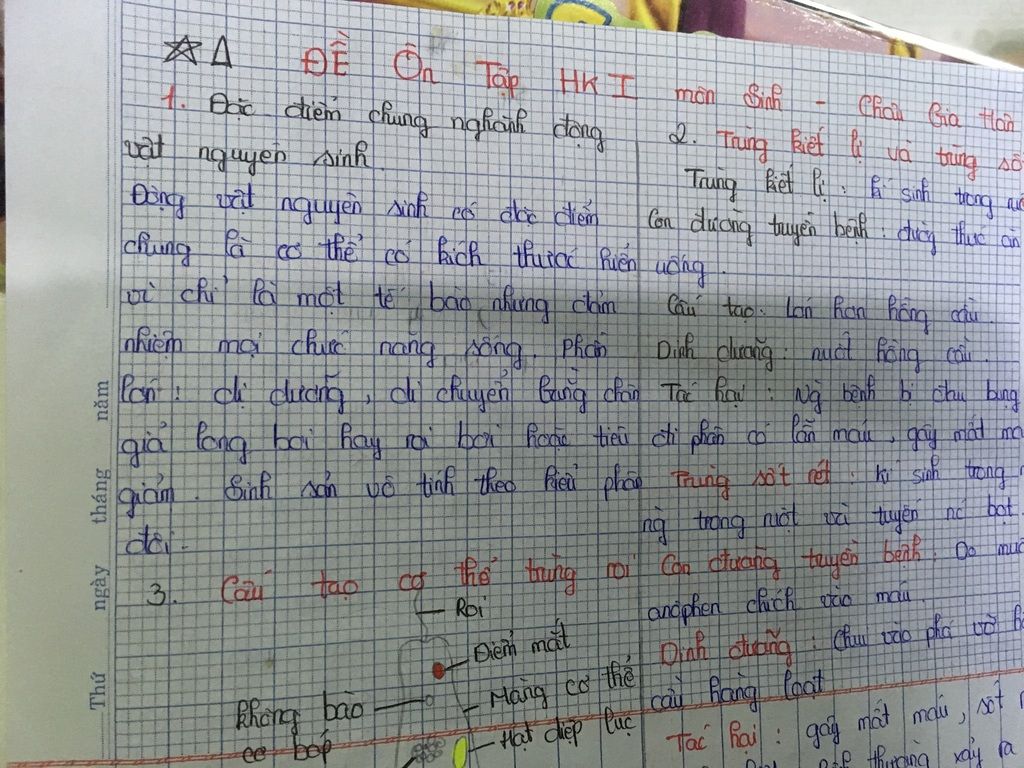 ĐỀ Ôn Tập HK I môn Sinh - Châu Gia Hân
1. Đặc điểm chung nghành động
vật nguyên sinh.
Động vật nguyên sinh có đặc điểm
chung là cơ thể có kích thước hiển
vi chỉ là một tế bào nhưng đảm
nhiệm mọi chức năng sống. Phần
lớn: dị dưỡng, di chuyển bằng chân
giả lông bơi hay roi bơi hoặc tiêu
giảm. Sinh sản vô tính theo kiểu phân
đôi.
3. Cấu tạo cơ thể trùng roi
Roi
Điểm mắt
Màng cơ thể
Không bào
co bóp
Hạt diệp lục
2. Trùng kiết lị và trùng
Trùng kiết lị: kí sinh trong
Con đường truyền bệnh: đường thức ăn
uống.
Cấu tạo: lớn hơn hồng cầu.
Dinh dưỡng: nuốt hồng cầu.
Tác hại: Ng bệnh bị đau bụng
đi phân có lẫn máu, gây mất
Trùng sốt rét: kí sinh trong
ng trong ruột và tuyến nc bọt
Con đường truyền bệnh: Do
anôphen chích vào máu.
Dinh dưỡng: Chui vào phá vỡ
cầu hàng loạt
Tác hại: gây mất máu, sốt
thường xảy ra
Thứ ngày tháng năm